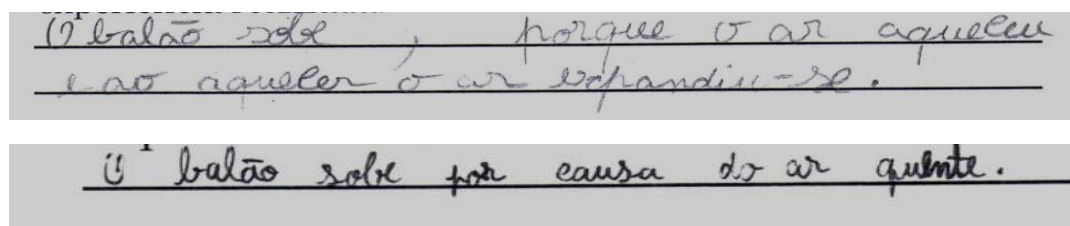 O balão sobe , porque o ar aqueceu
e ao aquecer o ar expandiu-se.
O balão sobe por causa do ar quente.